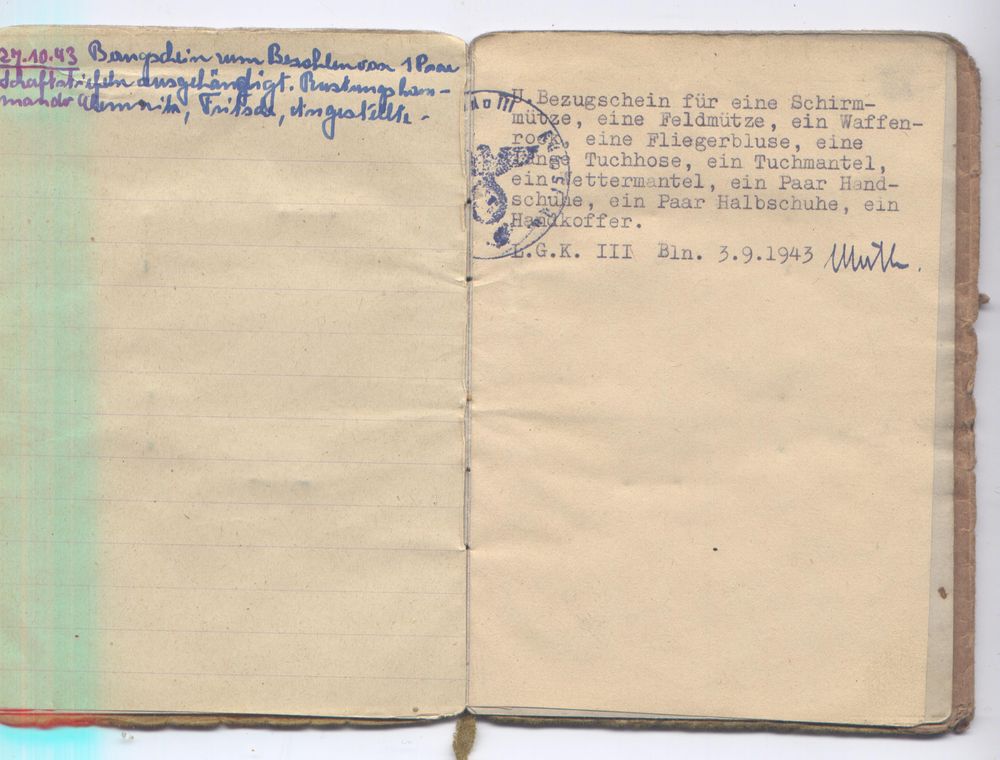 27.10.43 Bezugschein zum Besohlen von 1 Paar
Schaftstiefeln ausgehändigt. Rüstungskom-
mando Chemnitz, Fritsch, Angestellte.
III
H.Bezugschein für eine Schirm-
mütze, eine Feldmütze, ein Waffen-
rock, eine Fliegerbluse, eine
lange Tuchhose, ein Tuchmantel,
ein Wettermantel, ein Paar Hand-
schuhe, ein Paar Halbschuhe, ein
Handkoffer.
L.G.K. III Bln. 3.9.1943